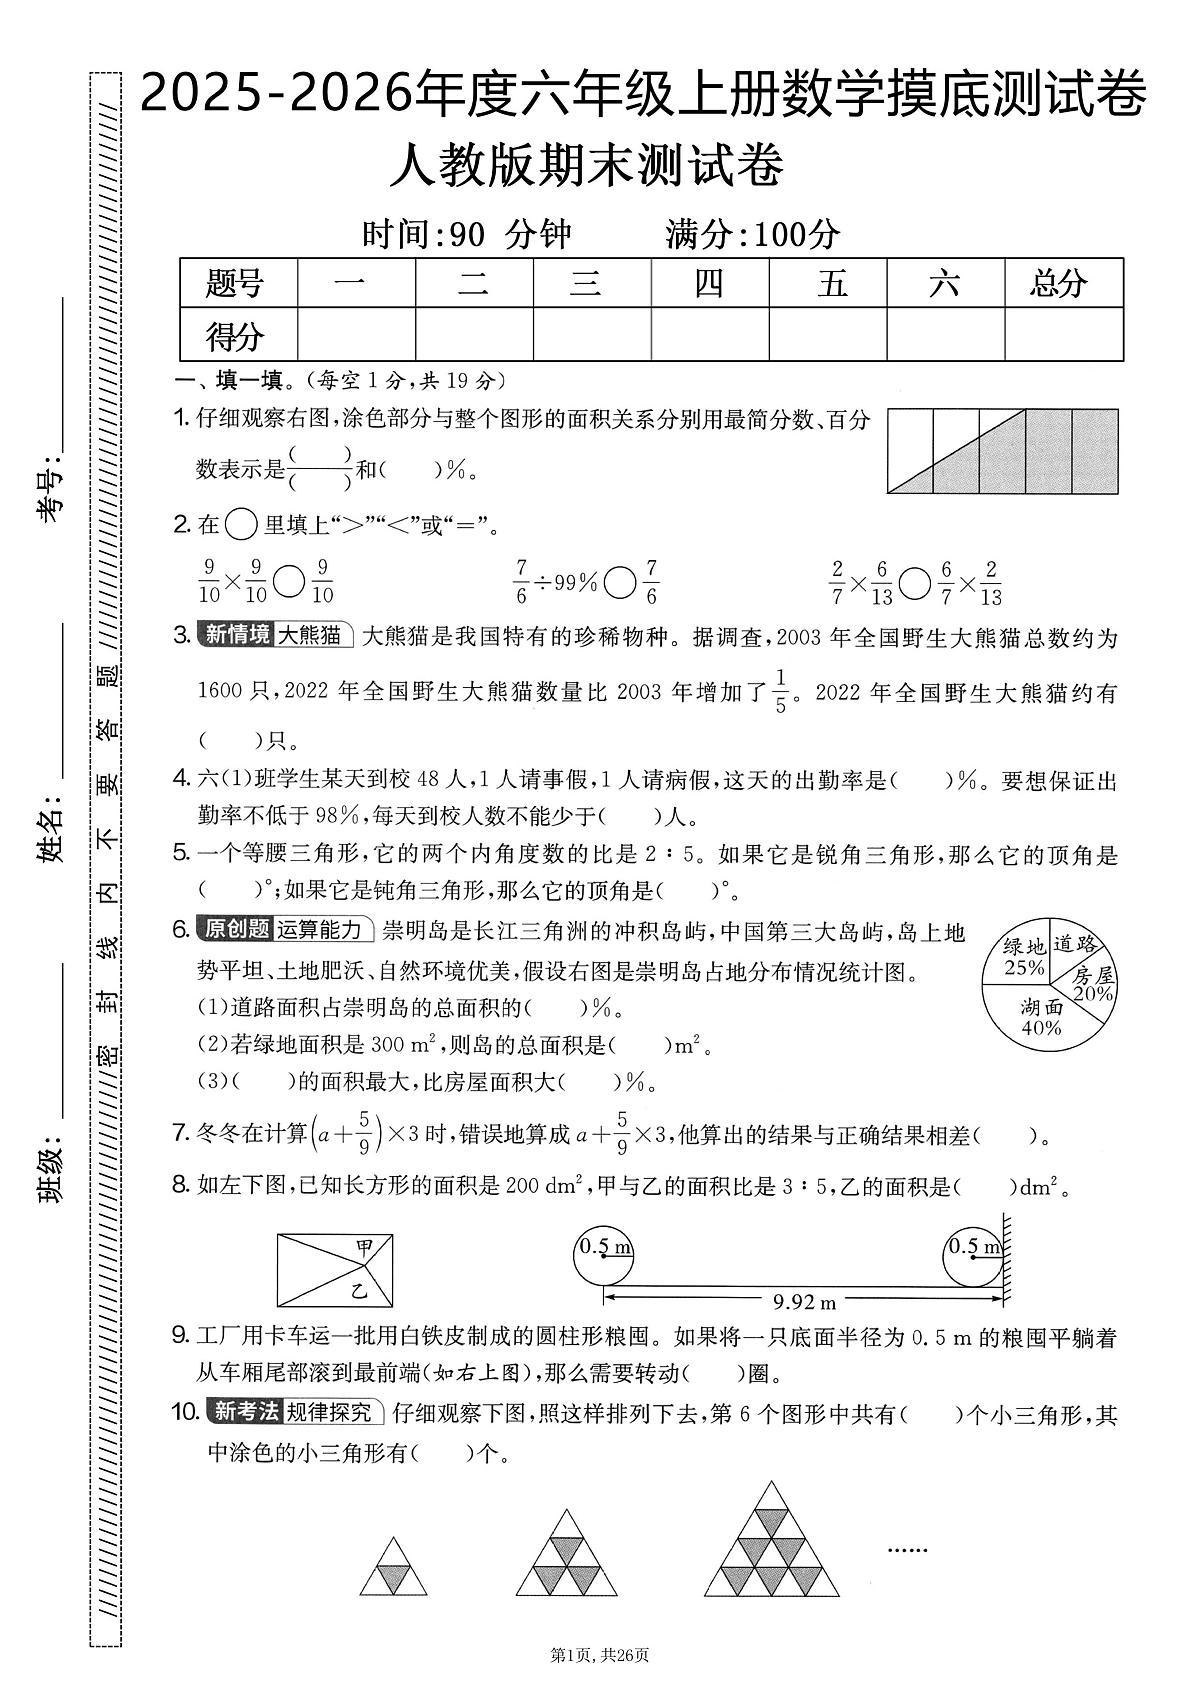 2025-2026年度六年级上册数学摸底测试卷
人教版期末测试卷
时间:90 分钟 满分:100分
题号 一 二 三 四 五 六 总分
得分
一、填一填。(每空1分,共19分)
1. 仔细观察右图,涂色部分与整个图形的面积关系分别用最简分数、百分
数表示是( )/( )和( )%。
2. 在○里填上“>”“<”或“=”。
9/10×9/10○9/10 7/6÷99%○7/6 2/7×6/13○6/7×2/13
3. 新情境 大熊猫 大熊猫是我国特有的珍稀物种。据调查,2003 年全国野生大熊猫总数约为
1600 只,2022 年全国野生大熊猫数量比 2003 年增加了1/5。2022 年全国野生大熊猫约有
( )只。
4. 六(1)班学生某天到校 48 人,1 人请事假,1 人请病假,这天的出勤率是( )%。要想保证出
勤率不低于 98%,每天到校人数不能少于( )人。
5. 一个等腰三角形,它的两个内角度数的比是 2∶5。如果它是锐角三角形,那么它的顶角是
( )°;如果它是钝角三角形,那么它的顶角是( )°。
6. 原创题 运算能力 崇明岛是长江三角洲的冲积岛屿,中国第三大岛屿,岛上地
势平坦、土地肥沃、自然环境优美,假设右图是崇明岛占地分布情况统计图。
绿地
25%
道路
房屋
20%
湖面
40%
(1)道路面积占崇明岛的总面积的( )%。
(2)若绿地面积是 300 m²,则岛的总面积是( )m²。
(3)( )的面积最大,比房屋面积大( )%。
7. 冬冬在计算(a+5/9)×3 时,错误地算成 a+5/9×3,他算出的结果与正确结果相差( )。
8. 如左下图,已知长方形的面积是 200 dm²,甲与乙的面积比是 3∶5,乙的面积是( )dm²。
甲
乙
0.5 m
0.5 m
9.92 m
9. 工厂用卡车运一批用白铁皮制成的圆柱形粮囤。如果将一只底面半径为 0.5 m 的粮囤平躺着
从车厢尾部滚到最前端(如右上图),那么需要转动( )圈。
10. 新考法 规律探究 仔细观察下图,照这样排列下去,第 6 个图形中共有( )个小三角形,其
中涂色的小三角形有( )个。
……
第1页,共26页
考号:
姓名:
班级:
密封线内不要答题